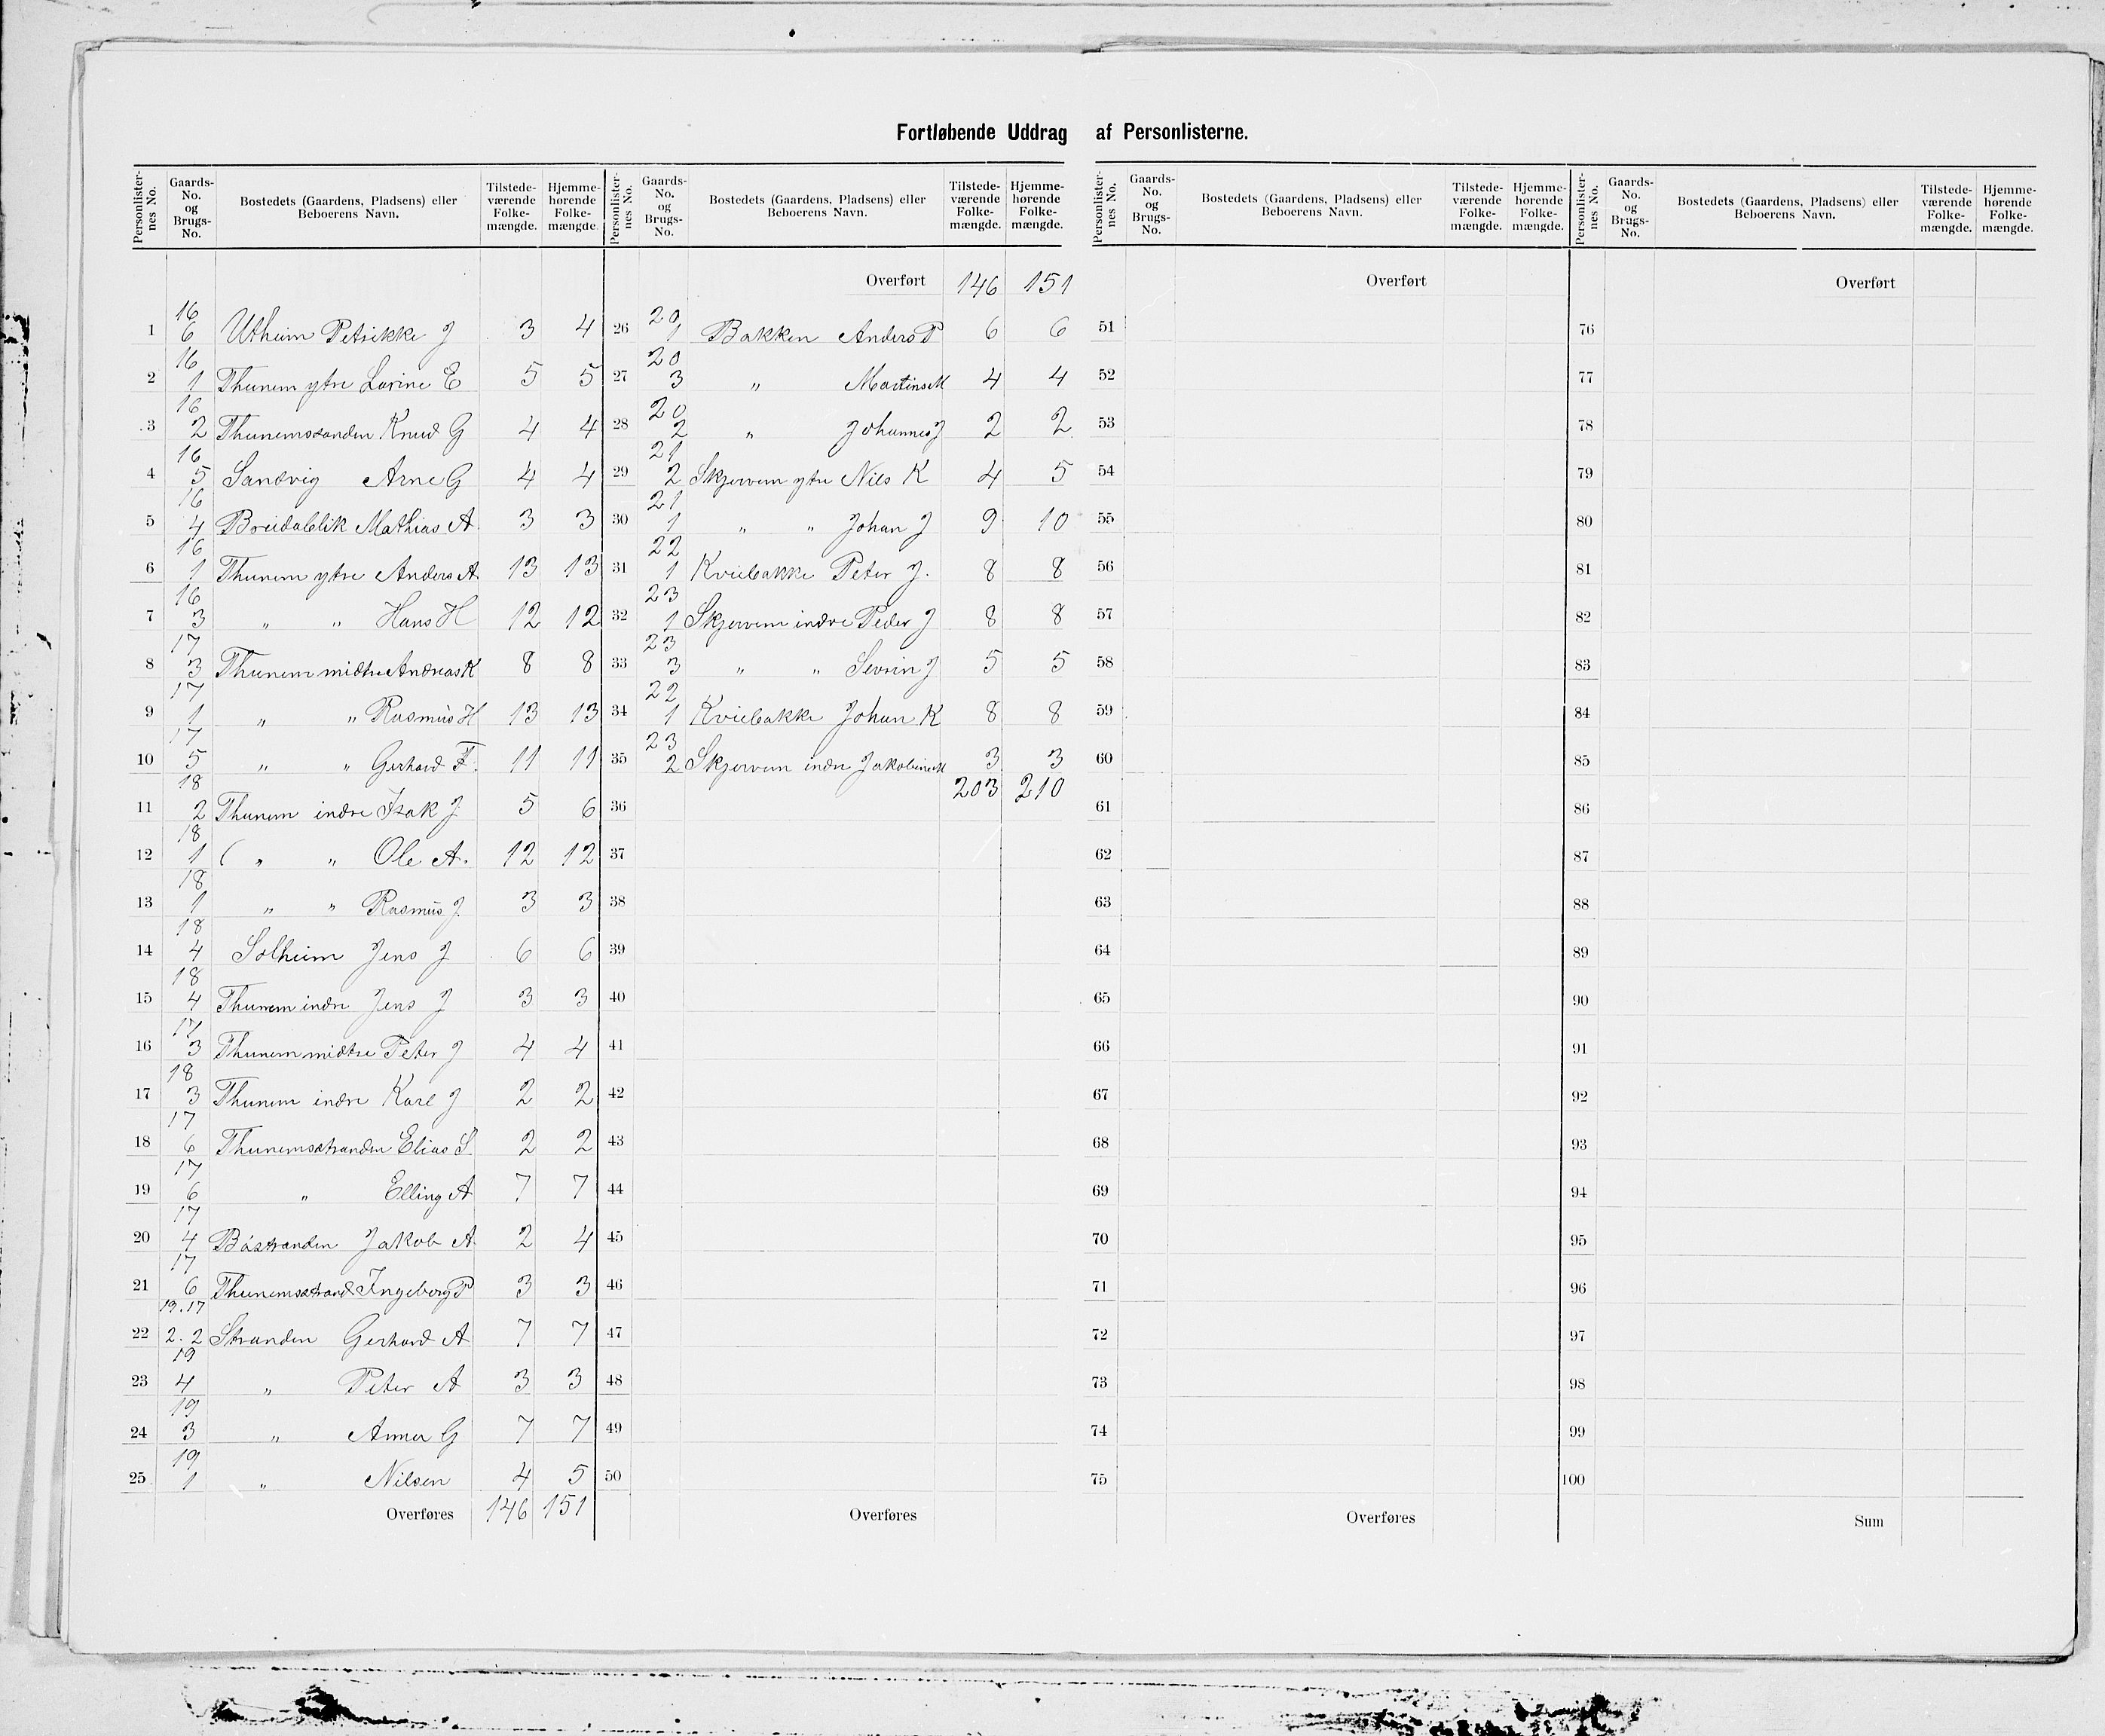 Fortløbende Uddrag af Personlisterne.
Personlisternes No. Gaards-No. og Brugs-No. Bostedets (Gaardens, Pladsens) eller Beboerens Navn. Tilstedeværende Folkemængde. Hjemmehørende Folkemængde.
1 16 6 Utheim Petrikke J 3 4
2 16 1 Thunem ytre Larine E 5 5
3 16 2 Thunemsranden Knud G 4 4
4 16 5 Sandvig Arne G 4 4
5 16 4 Breidablik Mathias A 3 3
6 16 1 Thunem ytre Anders A 13 13
7 16 3 " " Hans H 12 12
8 17 3 Thunem midtre Andreas K 8 8
9 17 1 " " Rasmus H 13 13
10 17 5 " " Gerhard F. 11 11
11 18 2 Thunem indre Isak J 5 6
12 18 1 ( " " Ole A. 12 12
13 18 1 " " Rasmus J 3 3
14 18 4 Solheim Jens J 6 6
15 18 4 Thunem indre Jens J 3 3
16 17 3 Thunem midtre Peter J 4 4
17 18 3 Thunem indre Karl J 2 2
18 17 6 Thunemsstranden Elias S 2 2
19 17 6 " Elling A 7 7
20 17 4 Båstranden Jakob A 2 4
21 17 6 Thunemsstrand Ingeborg P 3 3
22 19.17 2.2 Stranden Gerhard A 7 7
23 19 4 " Peter A 3 3
24 19 3 " Anna G 7 7
25 19 1 " Nilsen 4 5
Overføres 146 151
Personlisternes No. Gaards-No. og Brugs-No. Bostedets (Gaardens, Pladsens) eller Beboerens Navn. Tilstedeværende Folkemængde. Hjemmehørende Folkemængde.
Overført 146 151
26 20 1 Bakken Anders P 6 6
27 20 3 " Martinus M 4 4
28 20 2 " Johannes J 2 2
29 21 2 Skjervem ytre Nils K 4 5
30 21 1 " " Johan J 9 10
31 22 1 Kviebakke Peter J. 8 8
32 23 1 Skjervem indre Peder J 8 8
33 23 3 " " Sevrin J 5 5
34 22 1 Kviebakke Johan K 8 8
35 23 2 Skjervem indre Jakobine M 3 3
36 203 210
37
38
39
40
41
42
43
44
45
46
47
48
49
50
Overføres
Personlisternes No. Gaards-No. og Brugs-No. Bostedets (Gaardens, Pladsens) eller Beboerens Navn. Tilstedeværende Folkemængde. Hjemmehørende Folkemængde.
Overført
51
52
53
54
55
56
57
58
59
60
61
62
63
64
65
66
67
68
69
70
71
72
73
74
75
Overføres
Personlisternes No. Gaards-No. og Brugs-No. Bostedets (Gaardens, Pladsens) eller Beboerens Navn. Tilstedeværende Folkemængde. Hjemmehørende Folkemængde.
Overført
76
77
78
79
80
81
82
83
84
85
86
87
88
89
90
91
92
93
94
95
96
97
98
99
100
Sum